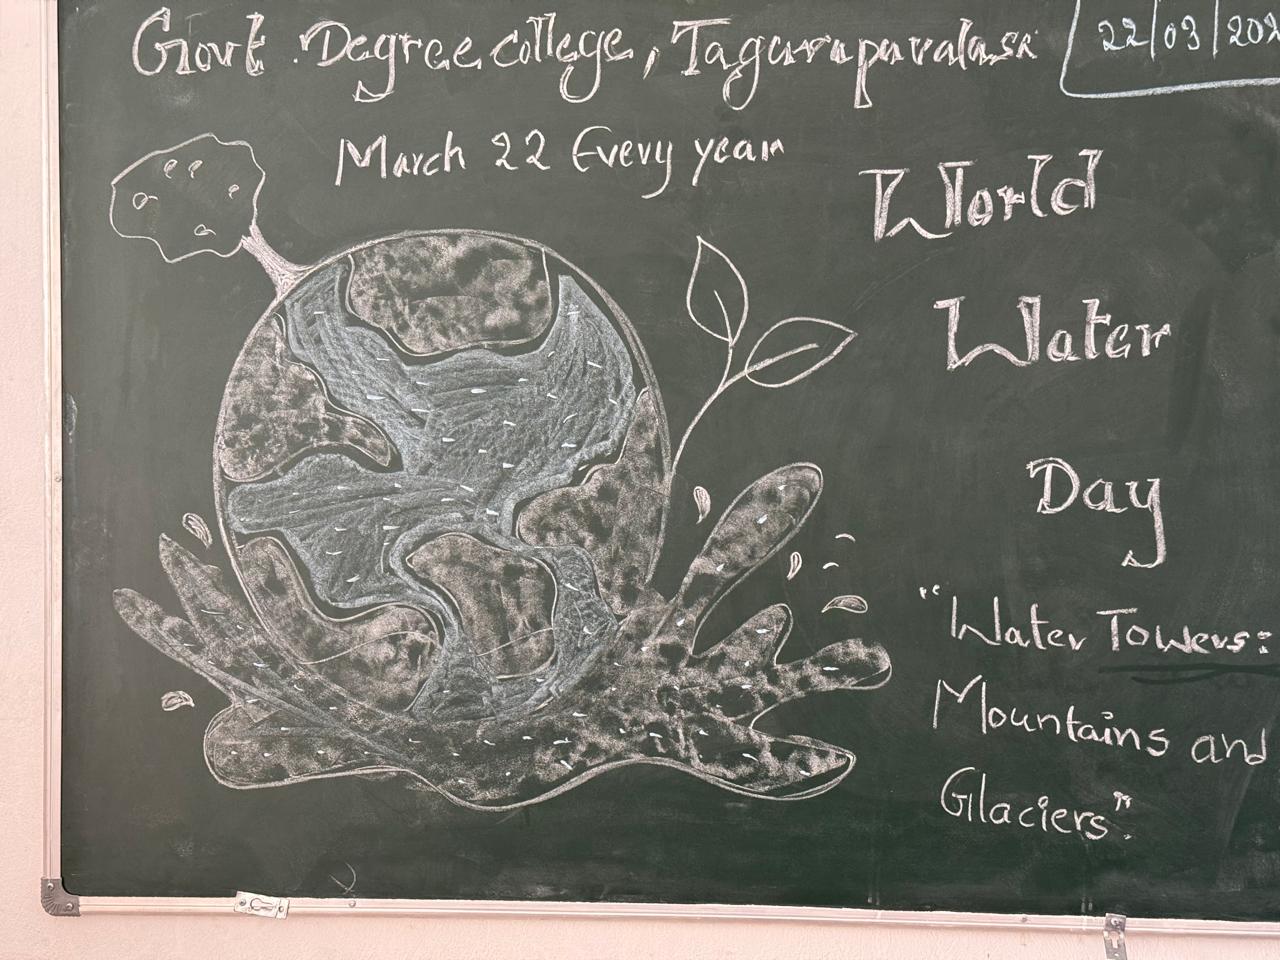 Govt. Degree college, Tagarapuvalasa
22/03/202
March 22 Every year
World
Water
Day
"Water Towers:
Mountains and
Glaciers".